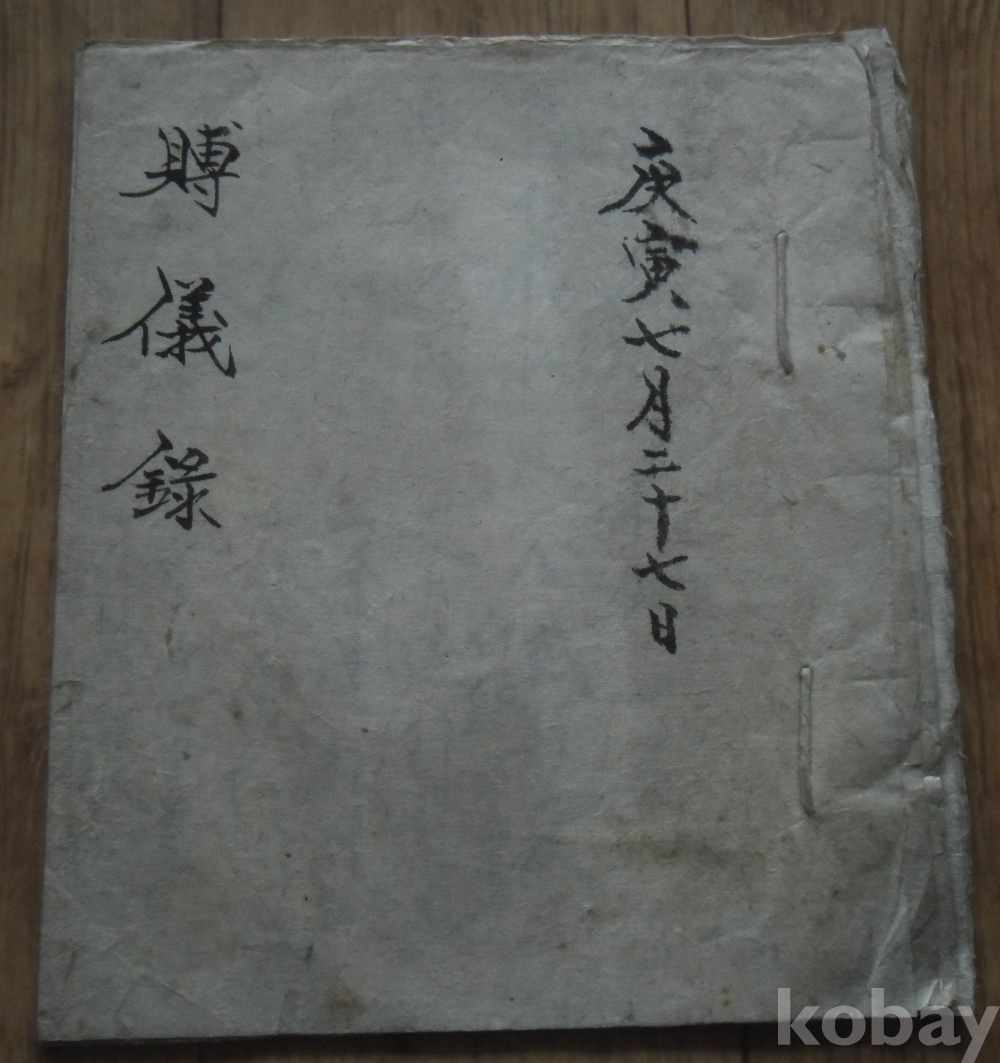 庚寅七月二十七日
賻儀錄
kobay